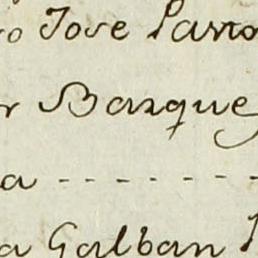 o Jose Parra
r Bazquez
a - - - - - - - -
a Galban